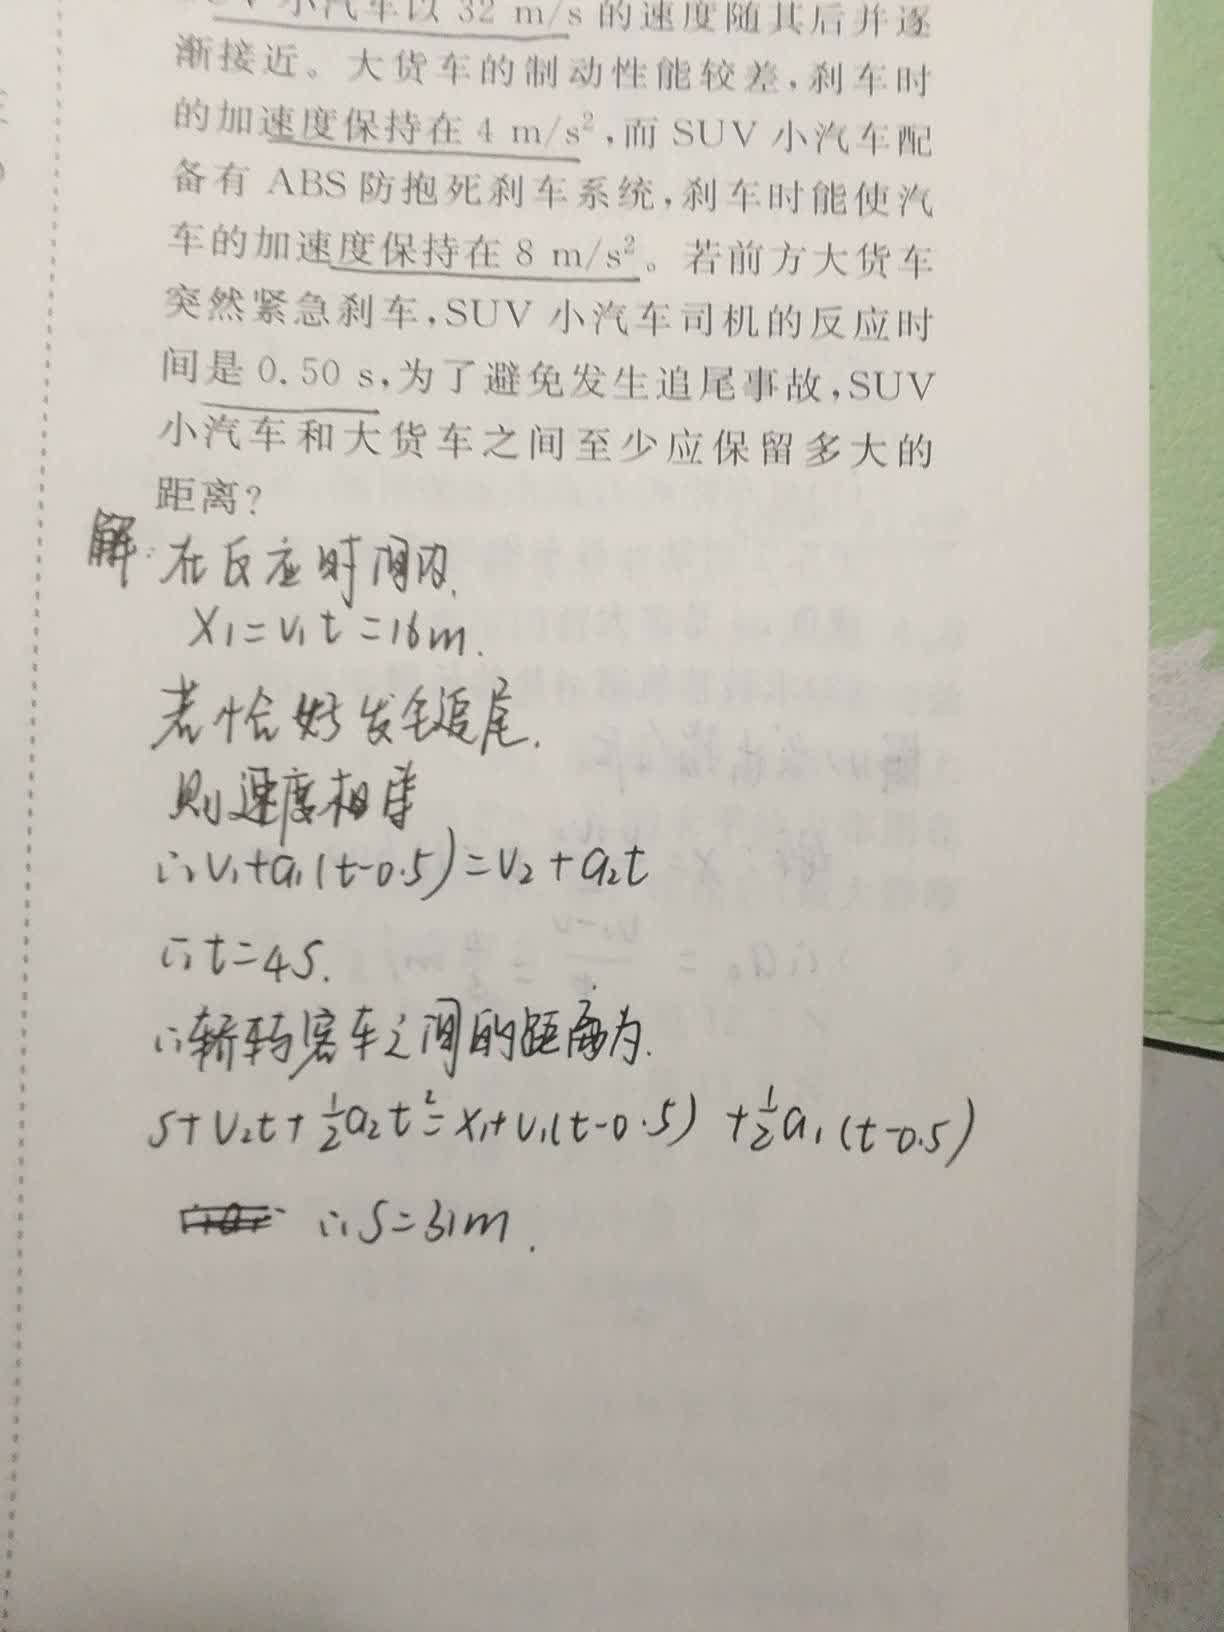 小汽车以 32 m/s 的速度随其后并逐
渐接近。大货车的制动性能较差,刹车时
的加速度保持在 4 m/s²,而 SUV 小汽车配
备有 ABS 防抱死刹车系统,刹车时能使汽
车的加速度保持在 8 m/s²。若前方大货车
突然紧急刹车,SUV 小汽车司机的反应时
间是 0.50 s,为了避免发生追尾事故,SUV
小汽车和大货车之间至少应保留多大的
距离?
解:在反应时间内,
X₁=V₁t=16m.
若恰好发生追尾,
则速度相等
∴V₁+a₁(t-0.5)=V₂+a₂t
∴t=4s.
∴轿车与客车之间的距离为.
S+V₂t+½a₂t²=X₁+V₁(t-0.5)+½a₁(t-0.5)
∴S=31m.